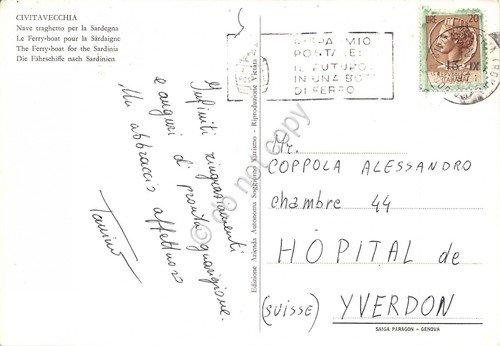 CIVITAVECCHIA
Nave traghetto per la Sardegna
Le Ferry-boat pour la Sardaigne
The Ferry-boat for the Sardinia
Die Fährschiffe nach Sardinien
Infiniti ringraziamenti
e auguri di pronta guarigione.
Un abbraccio affettuoso
Edizione Azienda Autonoma Soggiorno e Turismo - Riproduzione Vietata
LIRE 20
RISPARMIO
POSTALE:
IL FUTURO
IN UNA BOTTE
DI FERRO
Mr.
COPPOLA ALESSANDRO
chambre 44
HÔPITAL de
(SUISSE) YVERDON
SAIGA PARAGON - GENOVA
do not copy